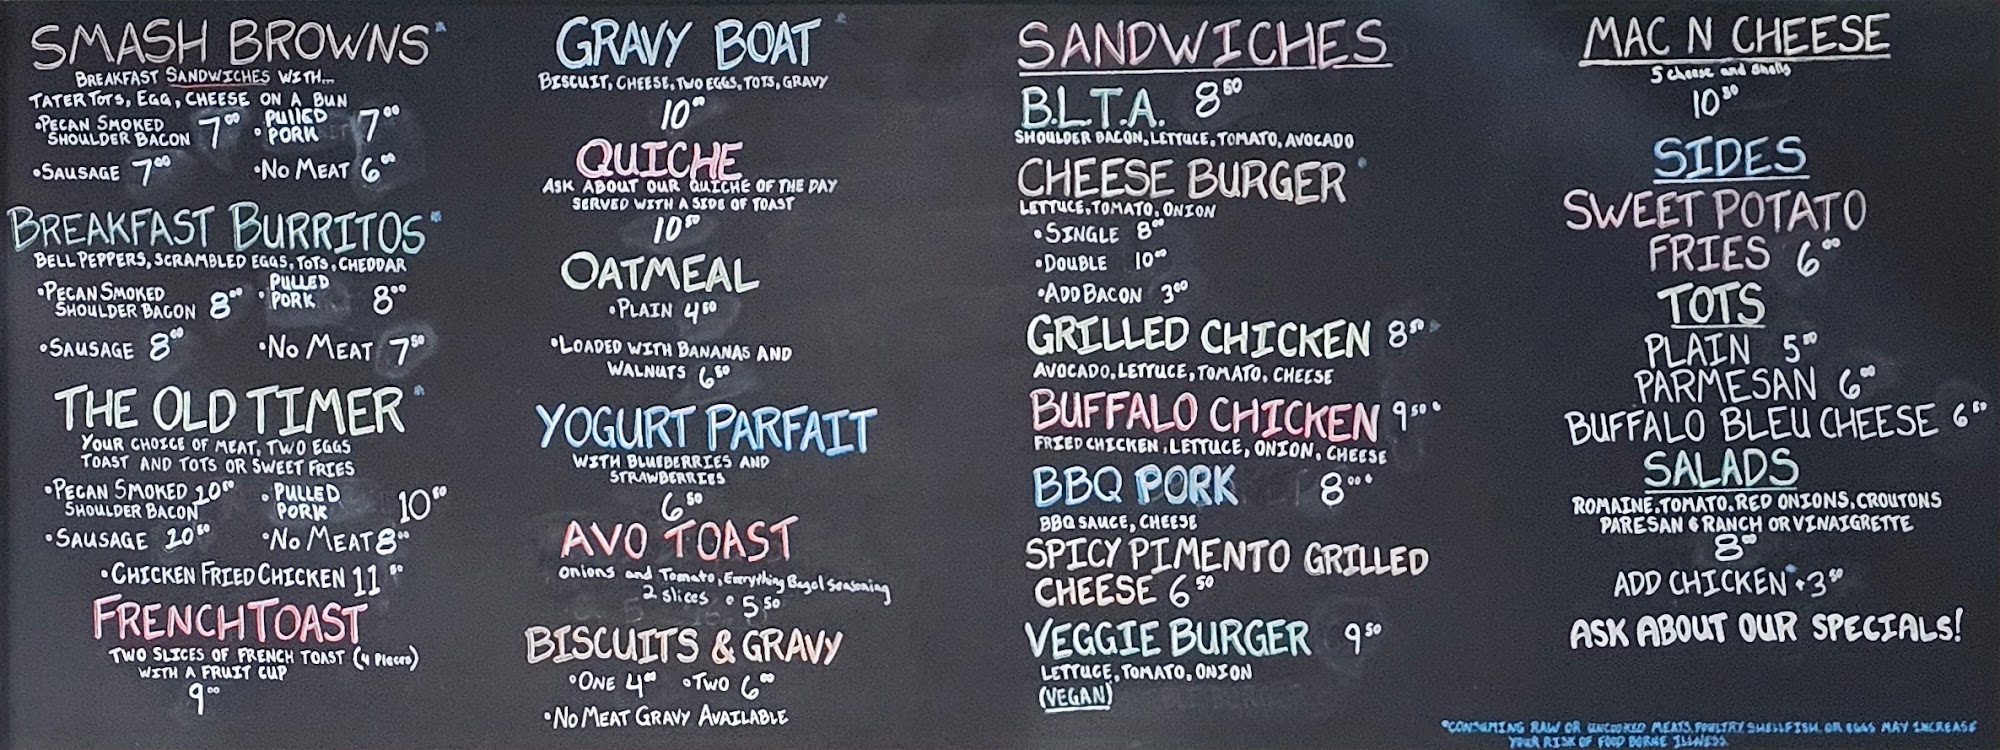 SMASH BROWNS*
BREAKFAST SANDWICHES WITH...
TATER TOTS, EGG, CHEESE ON A BUN
•PECAN SMOKED SHOULDER BACON 7⁰⁰ •PULLED PORK 7⁰⁰
•SAUSAGE 7⁰⁰ •NO MEAT 6⁰⁰
BREAKFAST BURRITOS*
BELL PEPPERS, SCRAMBLED EGGS, TOTS, CHEDDAR
•PECAN SMOKED SHOULDER BACON 8⁰⁰ •PULLED PORK 8⁰⁰
•SAUSAGE 8⁰⁰ •NO MEAT 7⁵⁰
THE OLD TIMER*
YOUR CHOICE OF MEAT, TWO EGGS
TOAST AND TOTS OR SWEET FRIES
•PECAN SMOKED SHOULDER BACON 10⁵⁰ •PULLED PORK 10⁵⁰
•SAUSAGE 10⁵⁰ •NO MEAT 8⁰⁰
•CHICKEN FRIED CHICKEN 11⁵⁰
FRENCH TOAST
TWO SLICES OF FRENCH TOAST (4 Pieces)
WITH A FRUIT CUP
9⁰⁰
GRAVY BOAT*
BISCUIT, CHEESE, TWO EGGS, TOTS, GRAVY
10⁰⁰
QUICHE
ASK ABOUT OUR QUICHE OF THE DAY
SERVED WITH A SIDE OF TOAST
10⁵⁰
OATMEAL
•PLAIN 4⁵⁰
•LOADED WITH BANANAS AND
WALNUTS 6⁵⁰
YOGURT PARFAIT
WITH BLUEBERRIES AND
STRAWBERRIES
6⁵⁰
AVO TOAST
Onions and Tomato, Everything Bagel Seasoning
2 slices • 5⁵⁰
BISCUITS & GRAVY
•ONE 4⁰⁰ •TWO 6⁰⁰
•NO MEAT GRAVY AVAILABLE
SANDWICHES
B.L.T.A. 8⁵⁰
SHOULDER BACON, LETTUCE, TOMATO, AVOCADO
CHEESE BURGER*
LETTUCE, TOMATO, ONION
•SINGLE 8⁰⁰
•DOUBLE 10⁰⁰
•ADD BACON 3⁰⁰
GRILLED CHICKEN 8⁵⁰*
AVOCADO, LETTUCE, TOMATO, CHEESE
BUFFALO CHICKEN 9⁵⁰*
FRIED CHICKEN, LETTUCE, ONION, CHEESE
BBQ PORK 8⁰⁰*
BBQ SAUCE, CHEESE
SPICY PIMENTO GRILLED
CHEESE 6⁵⁰
VEGGIE BURGER 9⁵⁰
LETTUCE, TOMATO, ONION
(VEGAN)
MAC N CHEESE
5 cheese and Shells
10⁵⁰
SIDES
SWEET POTATO
FRIES 6⁰⁰
TOTS
PLAIN 5⁰⁰
PARMESAN 6⁰⁰
BUFFALO BLEU CHEESE 6⁵⁰
SALADS
ROMAINE, TOMATO, RED ONIONS, CROUTONS
PARESAN & RANCH OR VINAIGRETTE
8⁰⁰
ADD CHICKEN* +3⁵⁰
ASK ABOUT OUR SPECIALS!
*CONSUMING RAW OR UNCOOKED MEATS, POULTRY, SHELLFISH, OR EGGS MAY INCREASE
YOUR RISK OF FOOD BORNE ILLNESS.